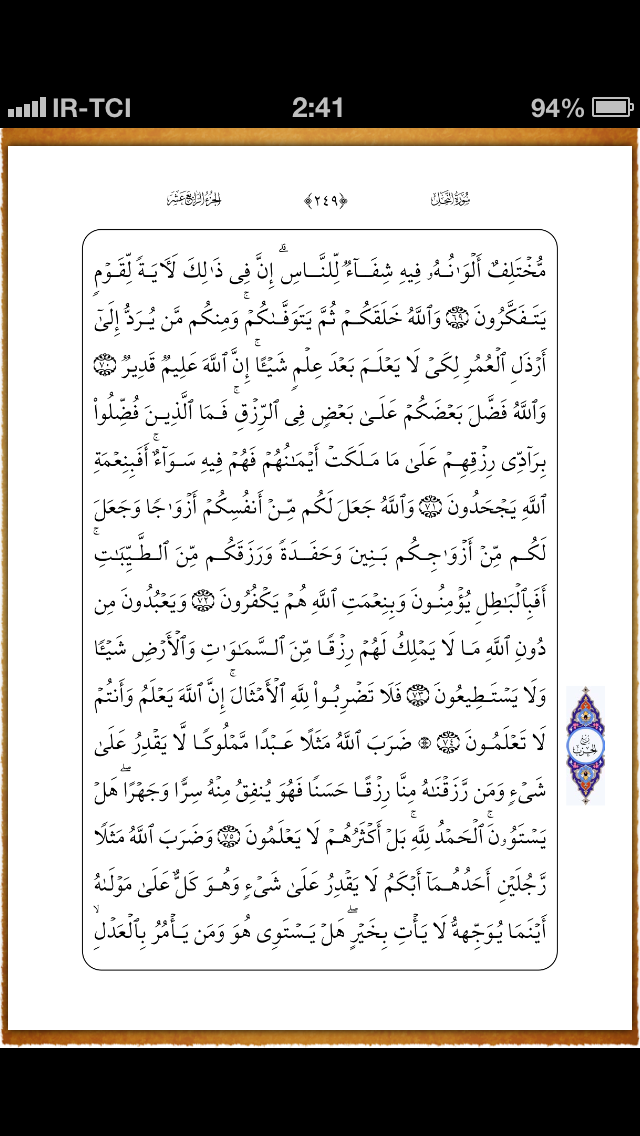 IR-TCI 2:41 94%
سُورَةُ النَّحْلِ ﴿٢٤٩﴾ الجُزءُ الرَّابِعَ عَشَرَ
مُّخۡتَلِفٌ أَلۡوَٰنُهُۥ فِيهِ شِفَآءٌ لِّلنَّاسِۚ إِنَّ فِي ذَٰلِكَ لَأٓيَةً لِّقَوۡمٍ
يَتَفَكَّرُونَ ٦٩ وَٱللَّهُ خَلَقَكُمۡ ثُمَّ يَتَوَفَّىٰكُمۡۚ وَمِنكُم مَّن يُرَدُّ إِلَىٰٓ
أَرۡذَلِ ٱلۡعُمُرِ لِكَيۡ لَا يَعۡلَمَ بَعۡدَ عِلۡمٍ شَيۡـًٔاۚ إِنَّ ٱللَّهَ عَلِيمٌ قَدِيرٌ ٧٠
وَٱللَّهُ فَضَّلَ بَعۡضَكُمۡ عَلَىٰ بَعۡضٍ فِي ٱلرِّزۡقِۚ فَمَا ٱلَّذِينَ فُضِّلُواْ
بِرَآدِّي رِزۡقِهِمۡ عَلَىٰ مَا مَلَكَتۡ أَيۡمَٰنُهُمۡ فَهُمۡ فِيهِ سَوَآءٌۚ أَفَبِنِعۡمَةِ
ٱللَّهِ يَجۡحَدُونَ ٧١ وَٱللَّهُ جَعَلَ لَكُم مِّنۡ أَنفُسِكُمۡ أَزۡوَٰجًا وَجَعَلَ
لَكُم مِّنۡ أَزۡوَٰجِكُم بَنِينَ وَحَفَدَةً وَرَزَقَكُم مِّنَ ٱلطَّيِّبَٰتِۚ
أَفَبِٱلۡبَٰطِلِ يُؤۡمِنُونَ وَبِنِعۡمَتِ ٱللَّهِ هُمۡ يَكۡفُرُونَ ٧٢ وَيَعۡبُدُونَ مِن
دُونِ ٱللَّهِ مَا لَا يَمۡلِكُ لَهُمۡ رِزۡقًا مِّنَ ٱلسَّمَٰوَٰتِ وَٱلۡأَرۡضِ شَيۡـًٔا
وَلَا يَسۡتَطِيعُونَ ٧٣ فَلَا تَضۡرِبُواْ لِلَّهِ ٱلۡأَمۡثَالَۚ إِنَّ ٱللَّهَ يَعۡلَمُ وَأَنتُمۡ
لَا تَعۡلَمُونَ ٧٤ ۞ ضَرَبَ ٱللَّهُ مَثَلًا عَبۡدًا مَّمۡلُوكًا لَّا يَقۡدِرُ عَلَىٰ
شَيۡءٍ وَمَن رَّزَقۡنَٰهُ مِنَّا رِزۡقًا حَسَنًا فَهُوَ يُنفِقُ مِنۡهُ سِرًّا وَجَهۡرًاۖ هَلۡ
يَسۡتَوُۥنَۚ ٱلۡحَمۡدُ لِلَّهِۚ بَلۡ أَكۡثَرُهُمۡ لَا يَعۡلَمُونَ ٧٥ وَضَرَبَ ٱللَّهُ مَثَلًا
رَّجُلَيۡنِ أَحَدُهُمَآ أَبۡكَمُ لَا يَقۡدِرُ عَلَىٰ شَيۡءٍ وَهُوَ كَلٌّ عَلَىٰ مَوۡلَىٰهُ
أَيۡنَمَا يُوَجِّههُّ لَا يَأۡتِ بِخَيۡرٍۖ هَلۡ يَسۡتَوِي هُوَ وَمَن يَأۡمُرُ بِٱلۡعَدۡلِۙ
ربع الحزب